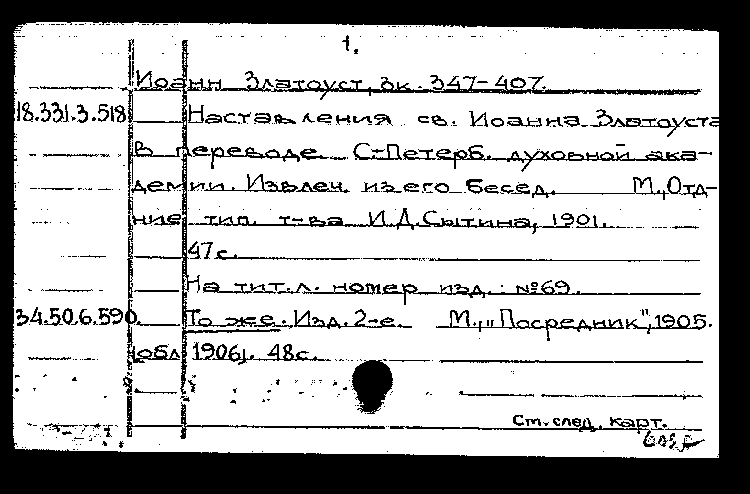 1.
Иоанн Златоуст, ок. 347-407.
18.331.3.518 Наставления св. Иоанна Златоуста
в переводе С-Петерб. духовной ака-
демии. Извлеч. из его бесед. М., Отд-
ние тип. т-ва И.Д.Сытина, 1901.
47 с.
На тит. л. номер изд.: №69.
34.50.6.590. То же. Изд. 2-е. М., "Посредник", 1905.
[обл. 1906]. 48 с.
Ст. след. карт.